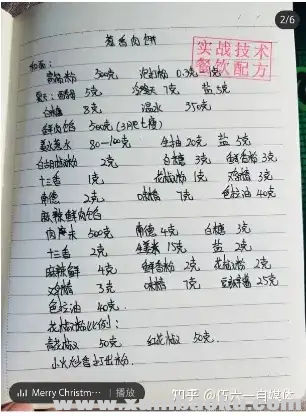 2/6
葱香肉饼
实战技术
餐饮配方
和面:
500g 泡打粉 0.3g
5克 冷猪油 7克 盐 5克
白糖 8克 温水 350克
鲜肉馅 500克 (3肥七瘦)
姜水 80-100克 生抽 20克 盐 5克
白胡椒粉 2克 白糖 3克 鲜香粉 3克
十三香 1克 花椒粉 1克 鸡精 3克
2克 味精 7克 色拉油 40克
麻辣鲜肉馅
肉 500克 4克 白糖 3克
十三香 2克 15克 盐 2克
麻辣鲜 4克 鲜香粉 2克 花椒粉 2克
鸡精 3克 味精 7克 豆瓣酱 25克
色拉油 40克
花椒粉比例:
青花椒 50克 红花椒 50克
小火炒香打出粉
Merry Christm... 播放
知乎 @伍六一自媒体